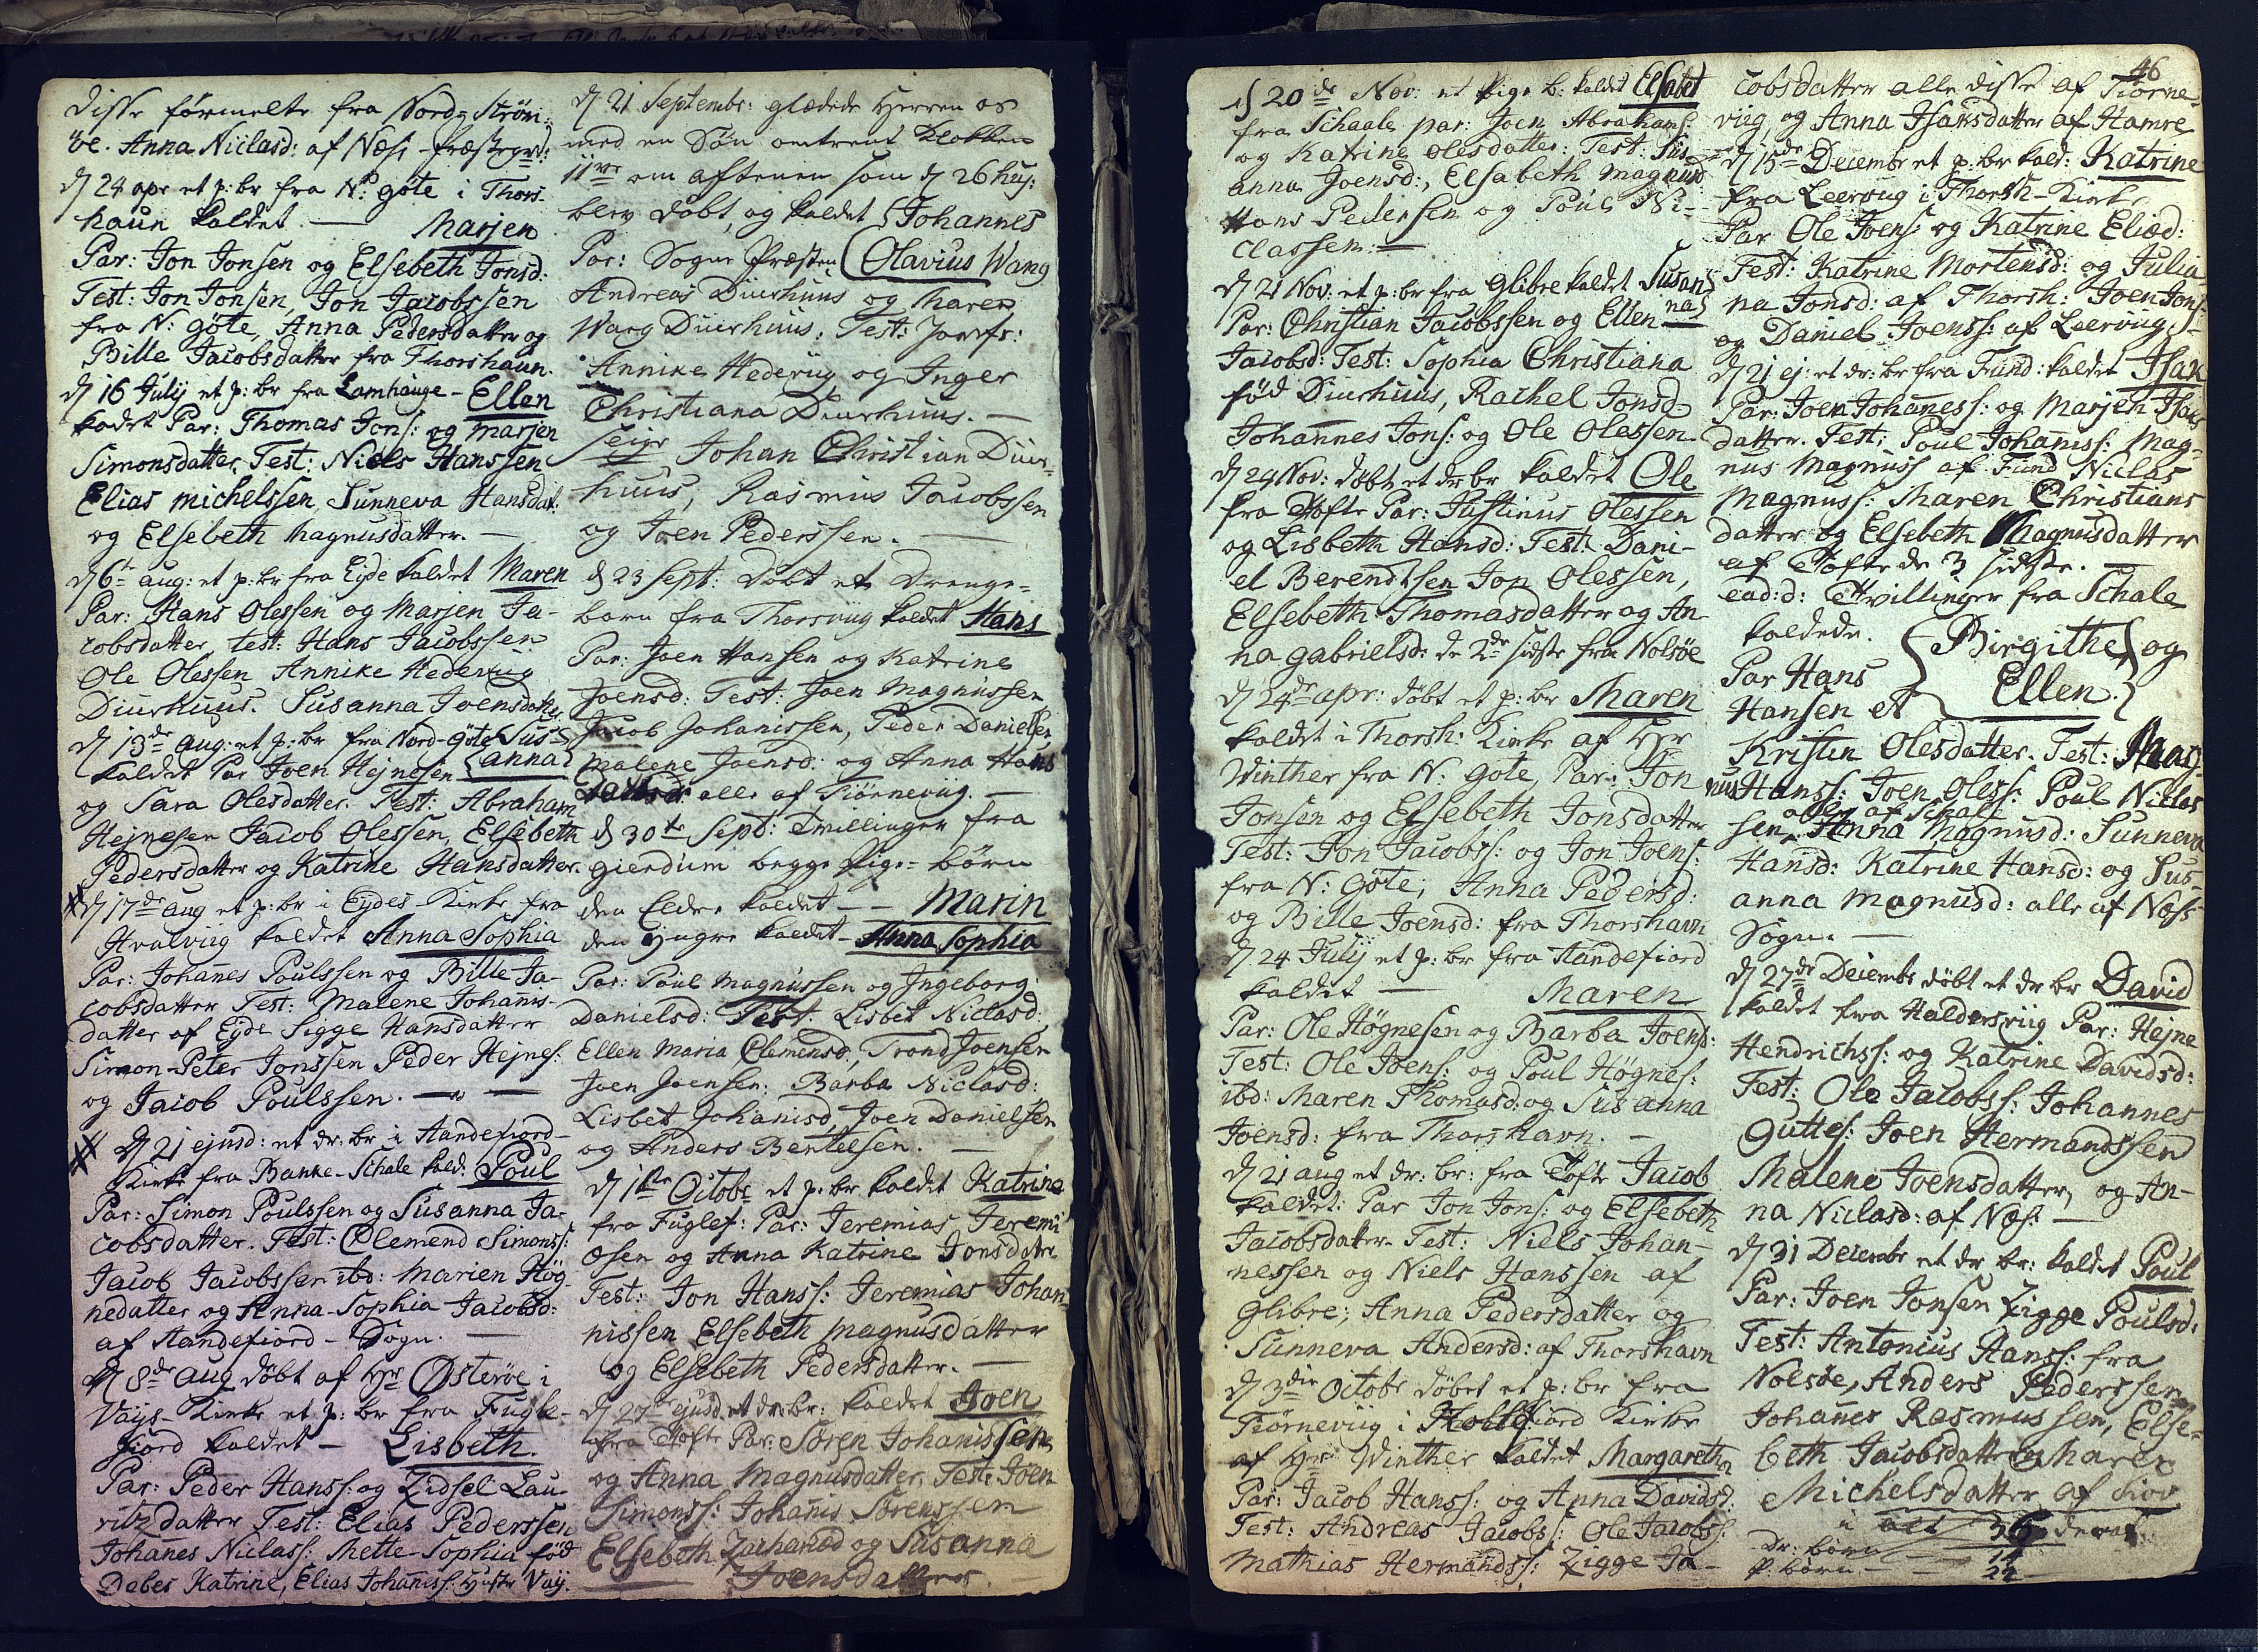 disse førmelte fra Nord-Strøm-
øe. Anna Niclasd: af Næs Præstegrd:
d 24 apr et p: br fra N: gøte i Thors-
haun kaldet — Marjen
Par: Jon Jonsen og Elsebeth Jonsd:
Test: Jon Jonsen, Jon Jacobssen
fra N: gøte, Anna Pedersdatter og
Bille Jacobsdatter fra Thorshaun.
d 16 Julij et p: br fra Lamhauge - Ellen
kadet Par: Thomas Jons: og Marjen
Simonsdatter Test: Niels Hanssen
Elias Michelssen, Sunneva Hansdat.
og Elsebeth Magnusdatter. —
d 6te aug: et p: br fra Eyde kaldet Maren
Par: Hans Olessen og Marjen Ja-
cobsdatter, test: Hans Jacobssen
Ole Olessen Annike Hedevug
Diurhuus. Susanna Joensdatter
d 13de aug: et p: br fra Nord-Gøte Sus-
kaldet Par Joen Hejnesen anna
og Sara Olesdatter. Test: Abraham
Hejnesen Jacob Olessen, Elsebeth
Pedersdatter og Katrine Hansdatter.
d 17de aug et p: br i Eydes-Kirke fra
Hvalviig kaldet Anna Sophia
Par: Johanes Poulssen og Bille Ja-
cobsdatter Test: Malene Johanis-
datter af Eyde Sigge Hansdatter
Simon-Peter Jonssen Peder Hejnes:
og Jacob Poulssen. —
d 21 ejusd: et dr: br i Andefiord-
Kirke fra Banke-Schale kald: Poul
Par: Simon Poulssen og Susanna Ja-
cobsdatter. Test: Clemend Simonss:
Jacob Jacobssen ibd: Marien Høg
nedatter og Anna-Sophia Jacobsd:
af Andefiord - Sogn. —
d 8de aug døbt af Hr Østerøe i
Vaÿs-Kirke et p: br fra Fugle-
fjord kaldet — Lisbeth.
Par: Peder Hanss: og Zidsel Lau-
ritzdatter Test: Elias Pederssen
Johanes Niclass: Mette-Sophia fød
Debes Katrine, Elias Johaness: Hustr Vaÿ.
d 21 Septembr: glædede Herren os
med en Søn omtrent Klokken
11ve om aftenen som d 26 huj:
blev døbt, og kaldet Johannes
Par: Sogne Præsten Olavius Wang
Andreas Diurhuus og Maren
Wang Diurhuus. Test: Jomfr:
Annike Hedevig og Inger
Christiana Diurhuus. —
Seigr Johan Christian Diur-
huus, Rasmus Jacobssen
og Joen Pederssen. —
d 23 Sept: døbt et Drenge-
barn fra Thorsviig kaldet Hans
Par: Joen Hansen og Katrine
Joensd: Test: Joen Magnussen
Jacob Johanissen, Peder Danielsen
Malene Joensd: og Anna Hans
alle af Tiørneviig. —
d 30te Sept: Tvillinger fra
Gierdum begge Pige-børn
den Eldre kaldet — Marin
den Yngre kaldet - Anna Sophia
Par: Poul Magnussen og Ingeborg
Danielsd: Test: Lisbet Niclasd:
Ellen Maria Clemensd, Trond Joensen
Joen Joensen: Barba Niclasd:
Lisbet Johanisd, Joen Danielsen
og Anders Bentelsen. —
d 1ste Octobr et p: br kaldet Katrina
fra Fuglef: Par: Jeremias Jeremi
æsen og Anna Katrine Jonsdatr
Test: Jon Hanss: Jeremias Johan-
nissen Elsebeth Magnusdatter
og Elsebeth Pedersdatter. —
d 27 ejusd et dr: br: kaldet Joen
fra Tofte Par: Søren Johanissen
og Anna Magnusdatter, Test: Joen
Simonss: Johanis Sørenssen
Elsebeth Zachariæd og Susanna
Joensdatter
46
d 20de Nov: et Pige b: kaldet Elsabet
fra Schaale par: Joen Abrahams:
og Katrine Olesdatter: Test: Sus-
anna Joensd:, Elsabeth Magnusd
Hans Pedersen og Poul Ni-
classen: —
d 21 Nov: et p: br fra Glibre kaldet Susan
Par: Christian Jacobssen og Ellen na
Jacobsd: Test: Sophia Christiana
fød Diurhuus, Rachel Jonsd-
Johannes Jons: og Ole Olessen.
d 24 Nov: døbt et dr br kaldet Ole
fra Tofte Par: Justinus Olessen
og Lisbeth Hansd: Test: Dani-
el Berendtsen Jon Olessen,
Elsebeth Thomasdatter og An-
na Gabrielsd: de 2de sidste fra Nolsøe
d 24de apr: døbt et p: br Maren
kaldet i Thorsh: Kirke af Hr
Winther fra N: gøte, Par: Jon
Jonsen og Elsebeth Jonsdatter
Test: Jon Jacobs: og Jon Joens:
fra N: Gøte, Anna Pedersd:
og Bille Joensd: fra Thorshavn
d 24 Julij et p: br fra Andefiord
kaldet — Maren
Par: Ole Høgnesen og Barba Joensd:
Test: Ole Joens: og Poul Høgnes:
ibd: Maren Thomasd: og Susanna
Joensd: fra Thorshavn. —
d 21 aug et dr: br: fra Tofte Jacob
kaldet: Par Jon Jons: og Elsebeth
Jacobsdatter. Test: Niels Johan-
nessen og Niels Hanssen af
Glibre; Anna Pedersdatter og
Sunneva Andersd: af Thorshavn
d 3die Octobr døbet et p: br fra
Tiørneviig i fiord Kirke
af Hr Winther kaldet Margaretha
Par: Jacob Hanss: og Anna Davidsd:
Test: Andreas Jacobs: Ole Jacobs:
Mathias Hermandss: Zigge Ja-
cobsdatter alle disse af Tiørne-
viig, og Anna Isaksdatter af Hamre
d 15de Decembr et p: br kald: Katrine
fra Leervug i Thorsh-Kirke
Par Ole Joens: og Katrine Eliæd:
Test: Katrine Mortensd: og Julia-
na Jonsd: af Thorsh: Joen Jons:
og Daniel Joenss: af Leerviig. —
d 21 ej: et dr: br fra Fund: kaldet Isak
Par: Joen Johaness: og Marjen Isacs
datter. Test: Poul Johaniss: Mag-
nus Magnuss af Fund Niclas
Magnuss: Maren Christians
datter og Elsebeth Magnusdatter
af Tofte de 3 sidste. —
ead: d: Tvillinger fra Schale
kaldede. Birgithe og
Par Hans Ellen.
Hansen et
Kristin Olesdatter. Test: Mag-
nus Hanss: Joen Oless: Poul Niclas
alle af Schale
sen, Anna Magnusd: Sunneva
Hansd: Katrine Hansd: og Sus-
anna Magnusd: alle af Næss-
Sogn. —
d 27de Decembr døbt et dr br David
kaldet fra Haldersviig Par: Hejne
Hendrichss: og Katrine Davidsd:
Test: Ole Jacobss: Johannes
Guttes: Joen Hermandssen
Malene Joensdatter, og An-
na Niclasd: af Næs: —
d 31 Decembr et dr br: kaldet Poul
Par: Joen Jonsen Zigge Poulsd:
Test: Antonius Hanss: fra
Nolsøe, Anders Pederssen
Johanes Rasmussen, Else-
beth Jacobsdatter og Maren
Michelsdatter af
i alt 36
dr: børn — 14
P: børn — 22